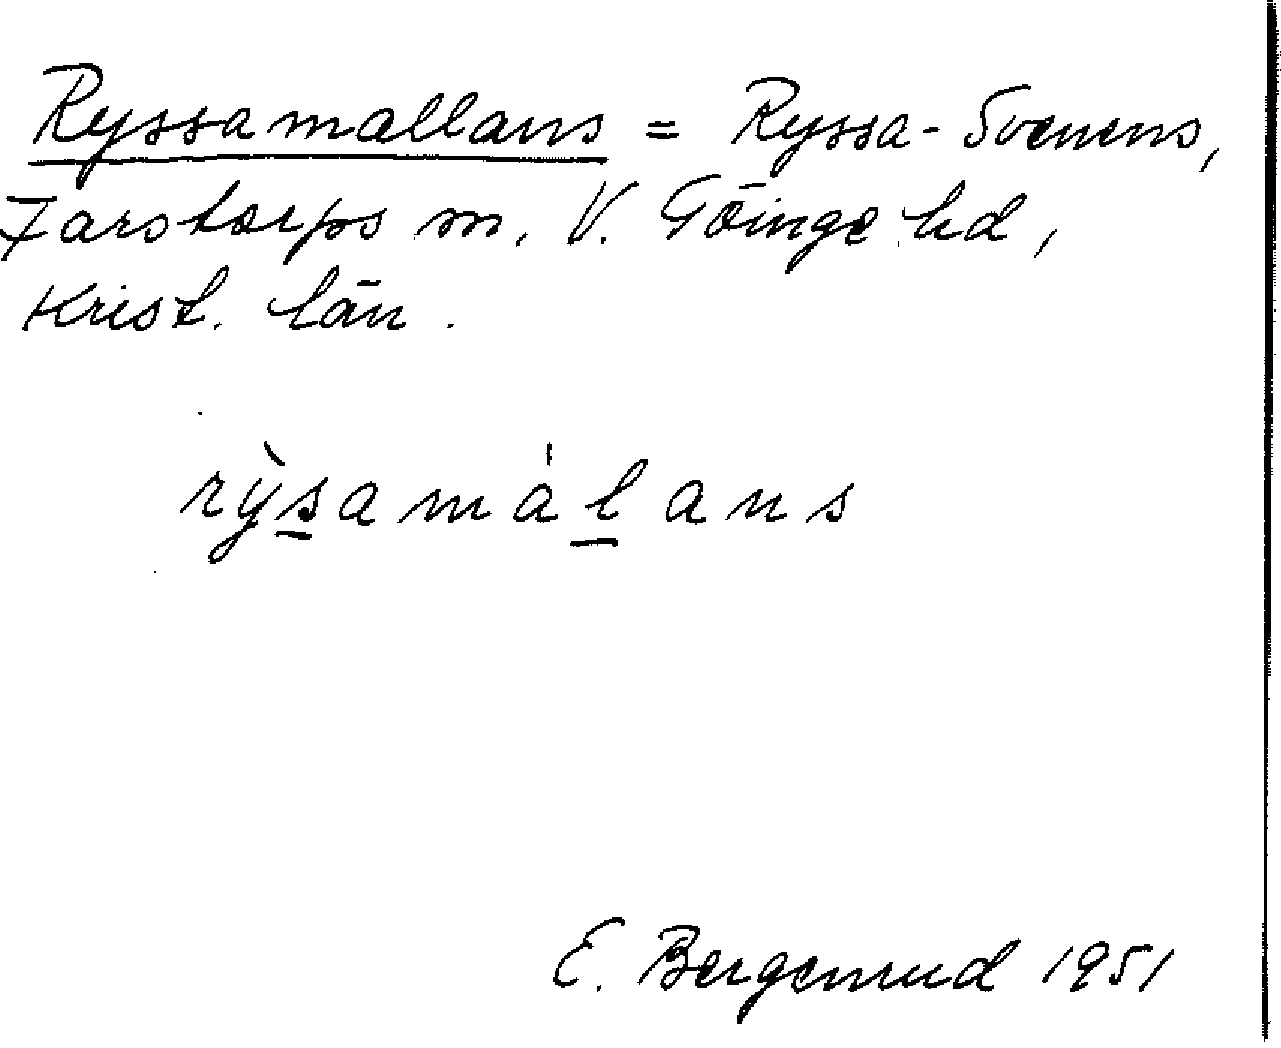 Ryssamallans = Ryssa-Svenens,
Farstorps sn, V. Göinge hd,
Krist. län.
rỳsamálans
E. Bergenrud 1951